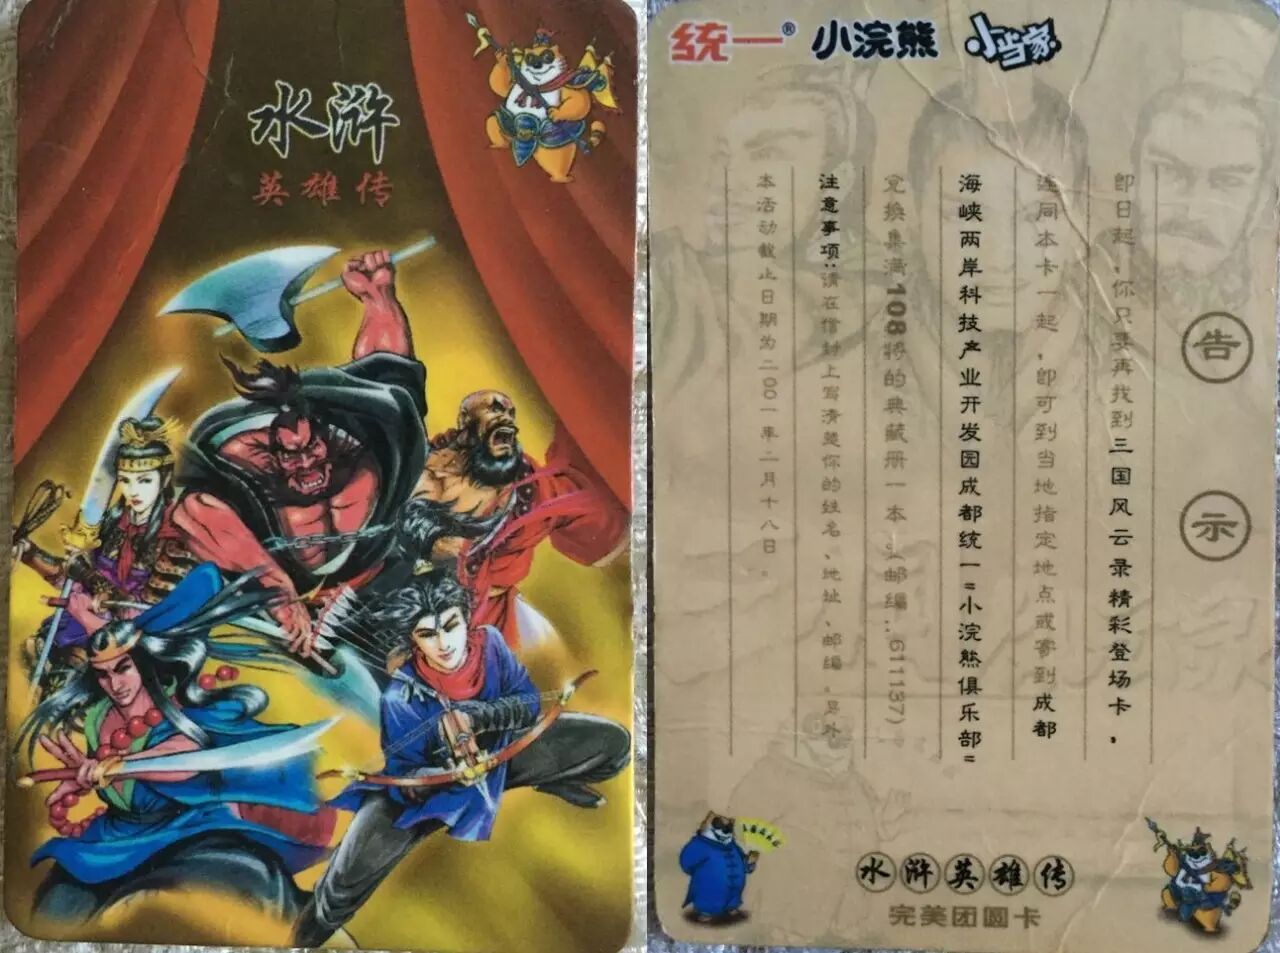 水浒
英雄传
统一® 小浣熊 小当家
告示
即日起，你只要再找到三国风云录精彩登场卡，
连同本卡一起，即可到当地指定地点或寄到成都
海峡两岸科技产业开发园成都统一"小浣熊俱乐部"
兑换集满108将的典藏册一本。(邮编：611137)
注意事项：请在信封上写清楚你的姓名、地址、邮编。另外
本活动截止日期为二00一年二月十八日。
水浒英雄传
完美团圆卡